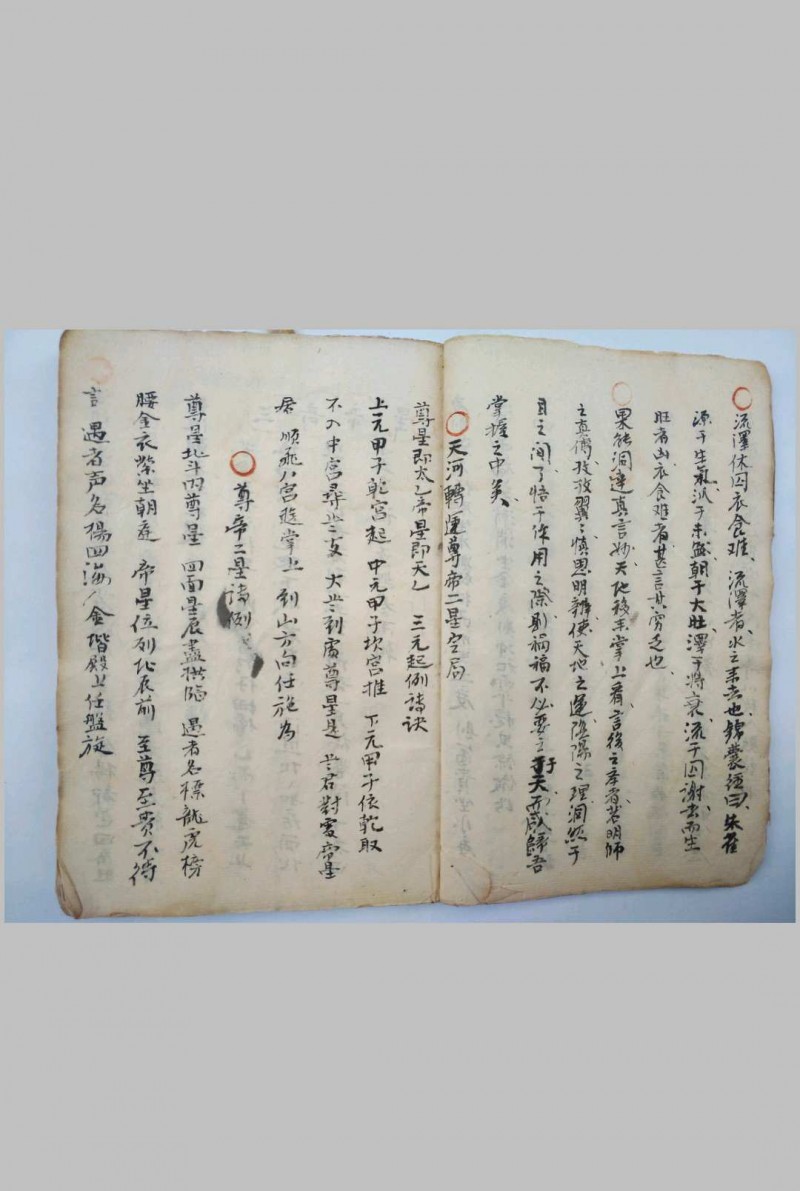 流澤休囚衣食难、流澤者水之来去也、錦囊經曰、朱雀
源于生氣、派于未盛、朝于大旺、澤于将衰、流于囚謝、去而生
旺者、山衣食难者、甚言其穷乏也、
果能洞達真言妙、天地移来掌上看、言後之李者、若明師
之真傳、孜孜翼〻、慎思明辨、使天地之運、陰陽之理、洞然于
目之间、了悟于体用之際、則祸福不必要之于天、而咸歸吾
掌握之中矣、
天河轉運尊帝二星空局
尊星即太乙 帝星即天乙 三元起例詩诀
上元甲子乾宫起 中元甲子坎宫推 下元甲子依乾取
不入中宫尋 支 太岁到處尊星是 岁君對處帝星
居 順飛八宫 掌上 到山方向任施为
尊帝二星詩例曰
尊星北斗 尊星 四面星辰盡拱臨 遇者名标龍虎榜
腰金衣紫坐朝廷 帝星位列北辰前 至尊至貴不待
言 遇者声名揚四海 金階殿上任盤旋